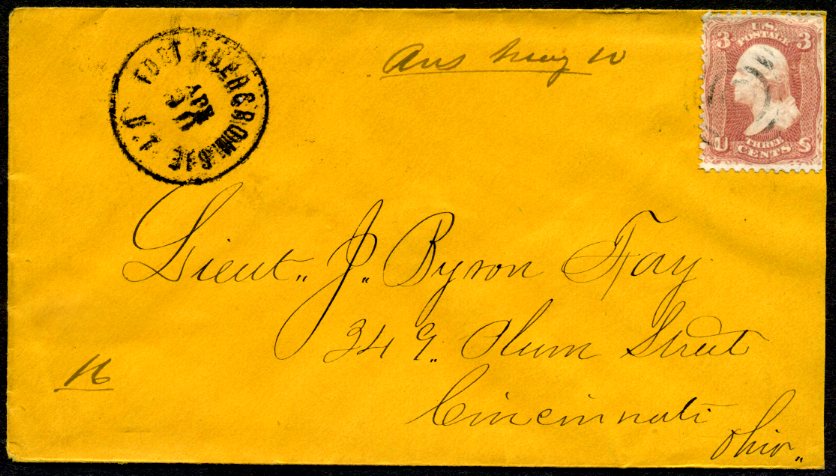 FORT ABERCROMBIE D.T.
APR
Ans May 10
3 US 3
POSTAGE
THREE
U CENTS S
Lieut. J. Byron Fay
349. Plum Street
Cincinnati
Ohio.
16